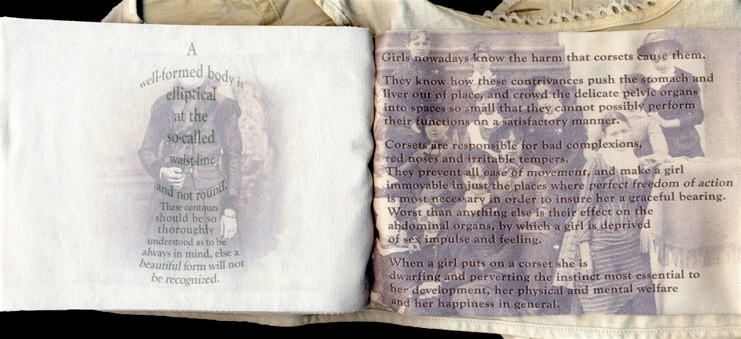 A
well-formed body is
elliptical
at the
so-called
waist-line
and not round.
These contours
should be so
thoroughly
understood as to be
always in mind, else a
beautiful form will not
be recognized.
Girls nowadays know the harm that corsets cause them.
They know how these contrivances push the stomach and
liver out of place, and crowd the delicate pelvic organs
into spaces so small that they cannot possibly perform
their functions on a satisfactory manner.
Corsets are responsible for bad complexions,
red noses and irritable tempers.
They prevent all ease of movement, and make a girl
immovable in just the places where perfect freedom of action
is most necessary in order to insure her a graceful bearing.
Worst than anything else is their effect on the
abdominal organs, by which a girl is deprived
of sex impulse and feeling.
When a girl puts on a corset she is
dwarfing and perverting the instinct most essential to
her development, her physical and mental welfare
and her happiness in general.